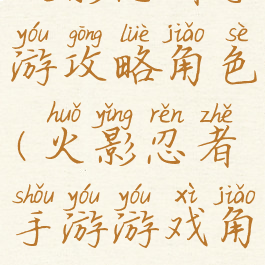 yóu gōng lüè jiǎo sè
游攻略角色
huǒ yǐng rěn zhě
(火影忍者
shǒu yóu yóu xì jiǎo
手游游戏角